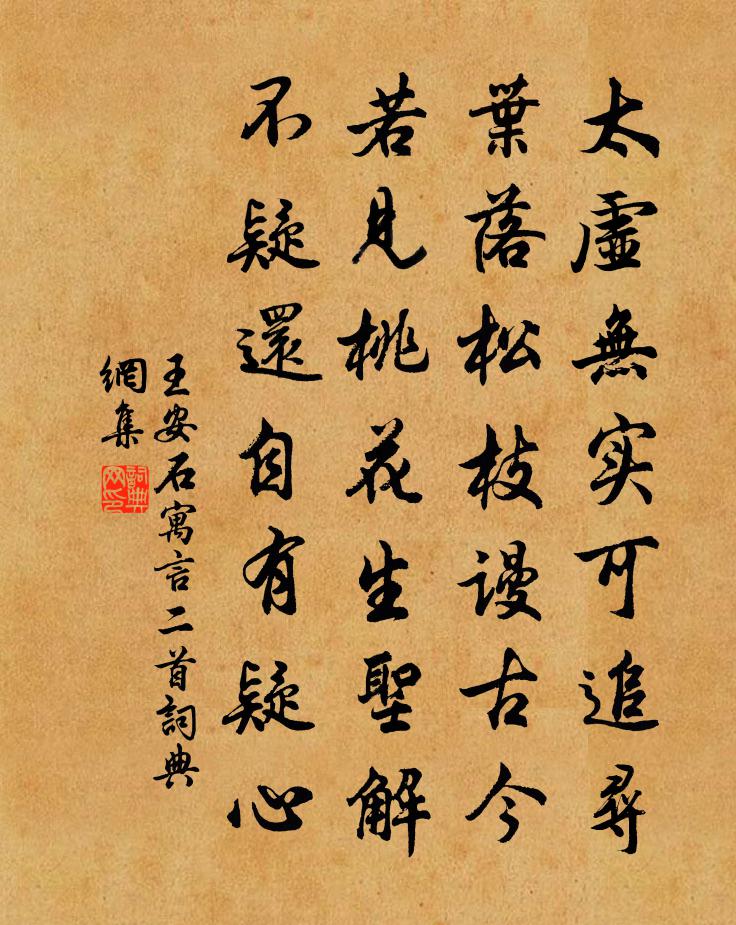 太虛無实可追尋
葉落松枝謾古今
若見桃花生聖解
不疑還自有疑心
王安石寓言二首詞典
網集
詞典
网印